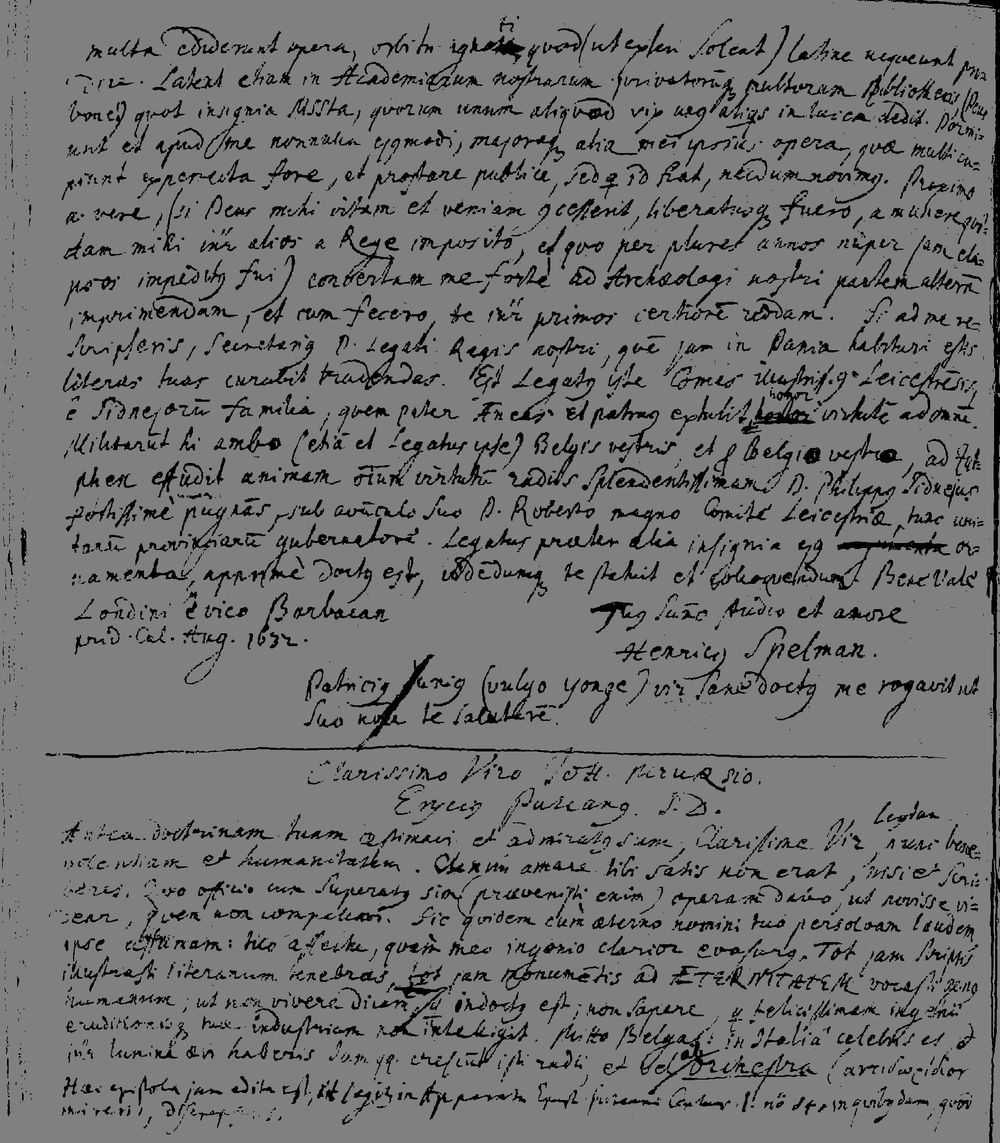 multa ediderunt opera, orbitu ignoti quod (ut expleri soleat) latine nequeunt pro=
dire. Latent etiam in Academiarum nostrarum privatorũq multorum Bibliothecis (Deus
bone!) quot insignia MSSta, quorum unum aliquod vix usq aliqs in lucem dedit. Dormi=
unt et apud me nonnulla ejgmodi, majoraq alia mei ipsius opera, quæ multi cu=
piunt experrecta fore, et prostare publice, sed q id fiat, necdum novimg. Proximo
a vere, (si Deus mihi vitam et veniam gcesserit, liberatusq fuero, a munere quo=
dam mihi inr alios a Rege imposito, et quo per plures annos nuper jam ela=
psos impeditg fui) convertam me forte ad Archæologi nostri partem alterã
imprimendam, et cum fecero, te inr primos certiorẽ reddam. Si ad me re=
scripseris, Secretarig D. Legati Regis nostri, quẽ jam in Dania habituri estis
literas tuas curabit tradendas. Est Legatg iste Comes illustrissg Leicestrẽsis,
ẽ Sidnejorũ familia, quem pater Æneas et patrug extulit, honor virtutẽ ad omnẽ.
Militarũt hi ambo (etiã et Legatus ipse) Belgis vestris, et p Belgio vestro, ad Zut=
phen effudit animam oĩum virtutũ radiis splendentissimam D. Philippg Sidnejus
fortissimè pugnãs, sub avũculo suo D. Roberto magno Comite Leicestriæ, tunc uni=
tarũ provinciarũ gubernatorẽ. Legatus præter alia insignia ejg or=
namenta, apprimè doctg est, videdumq te stabit et colloquendum. Bene Vale
Londini è vico Barbacan
prid. Cal. Aug. 1632.
Tug summo studio et amore
Henricg Spelman.
Patricig Junig (vulgo Yonge) vir sanè doctg me rogavit ut
suo noĩe te salutarẽ.
Clarissimo Viro Joh. Meursio.
Erycig Puteang. S.D.
Antea doctrinam tuam æstimavi et admiratg sum, Clarissime Vir, nunc bene=
volentiam et humanitatem. Etenim amare tibi satis non erat, nisi et scri=
beres. Quo officio cum superatg sim (prævenisti enim) operam dabo, ut novisse vi=
dear, quem non compellavi. Sic quidem cum æterno nomini tuo persolvam laudem
ipse æstimam: tuo affectu, quam meo ingenio clarior evasurg. Tot jam scriptis
illustrasti literarum tenebras, tot jam monumẽtis ad ÆTERNITATEM vocasti geng
humanum; ut non vivere dicam si indoctg est; non sapere, q felicissimam ingenii
eruditionisq tuæ industriam non intelligit. Mitto Belgas: in Italia celebris es, &
inr lumina ævi haberis
Hæc epistola jam edita est, et legitur in Apparatu Eryci Puteani Centur. I. nõ 84. in quibusdam, quod